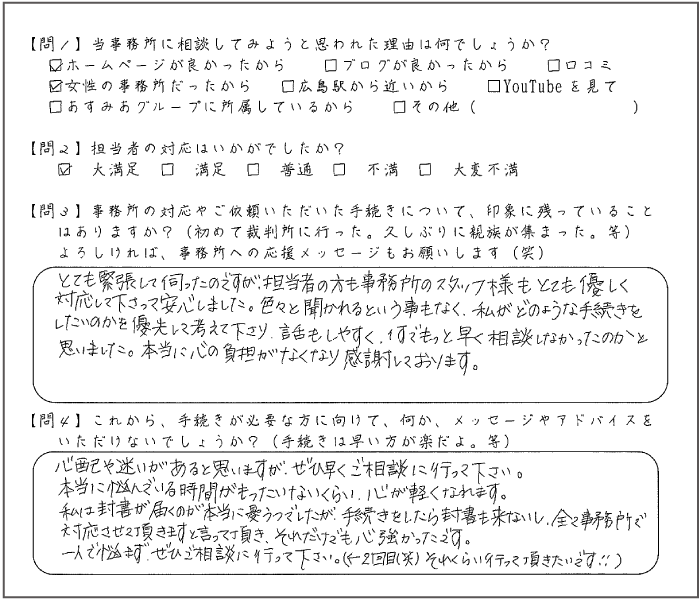 【問1】当事務所に相談してみようと思われた理由は何でしょうか？
☑ホームページが良かったから □ブログが良かったから □口コミ
☑女性の事務所だったから □広島駅から近いから □YouTubeを見て
□あすみあグループに所属しているから □その他（ ）
【問2】担当者の対応はいかがでしたか？
☑ 大満足 □ 満足 □ 普通 □ 不満 □ 大変不満
【問3】事務所の対応やご依頼いただいた手続きについて、印象に残っていること
はありますか？（初めて裁判所に行った。久しぶりに親族が集まった。等）
よろしければ、事務所への応援メッセージもお願いします（笑）
とても緊張して伺ったのですが、担当者の方も事務所のスタッフ様もとても優しく
対応して下さって安心しました。色々と聞かれるという事もなく、私がどのような手続きを
したいのかを優先して考えて下さり、話もしやすく、何でもっと早く相談しなかったのか、と
思いました。本当に心の負担がなくなり感謝しております。
【問4】これから、手続きが必要な方に向けて、何か、メッセージやアドバイスを
いただけないでしょうか？（手続きは早い方が楽だよ。等）
心配や迷いがあると思いますが、ぜひ早くご相談に行って下さい。
本当に悩んでいる時間がもったいないくらい、心が軽くなれます。
私は封書が届くのが本当に憂うつでしたが、手続きをしたら封書も来ないし、全て事務所で
対応させて頂きますと言って頂き、それだけでも心強かったです。
一人で悩まず、ぜひご相談に行って下さい。（←2回目（笑）それくらい行って頂きたいです!!）